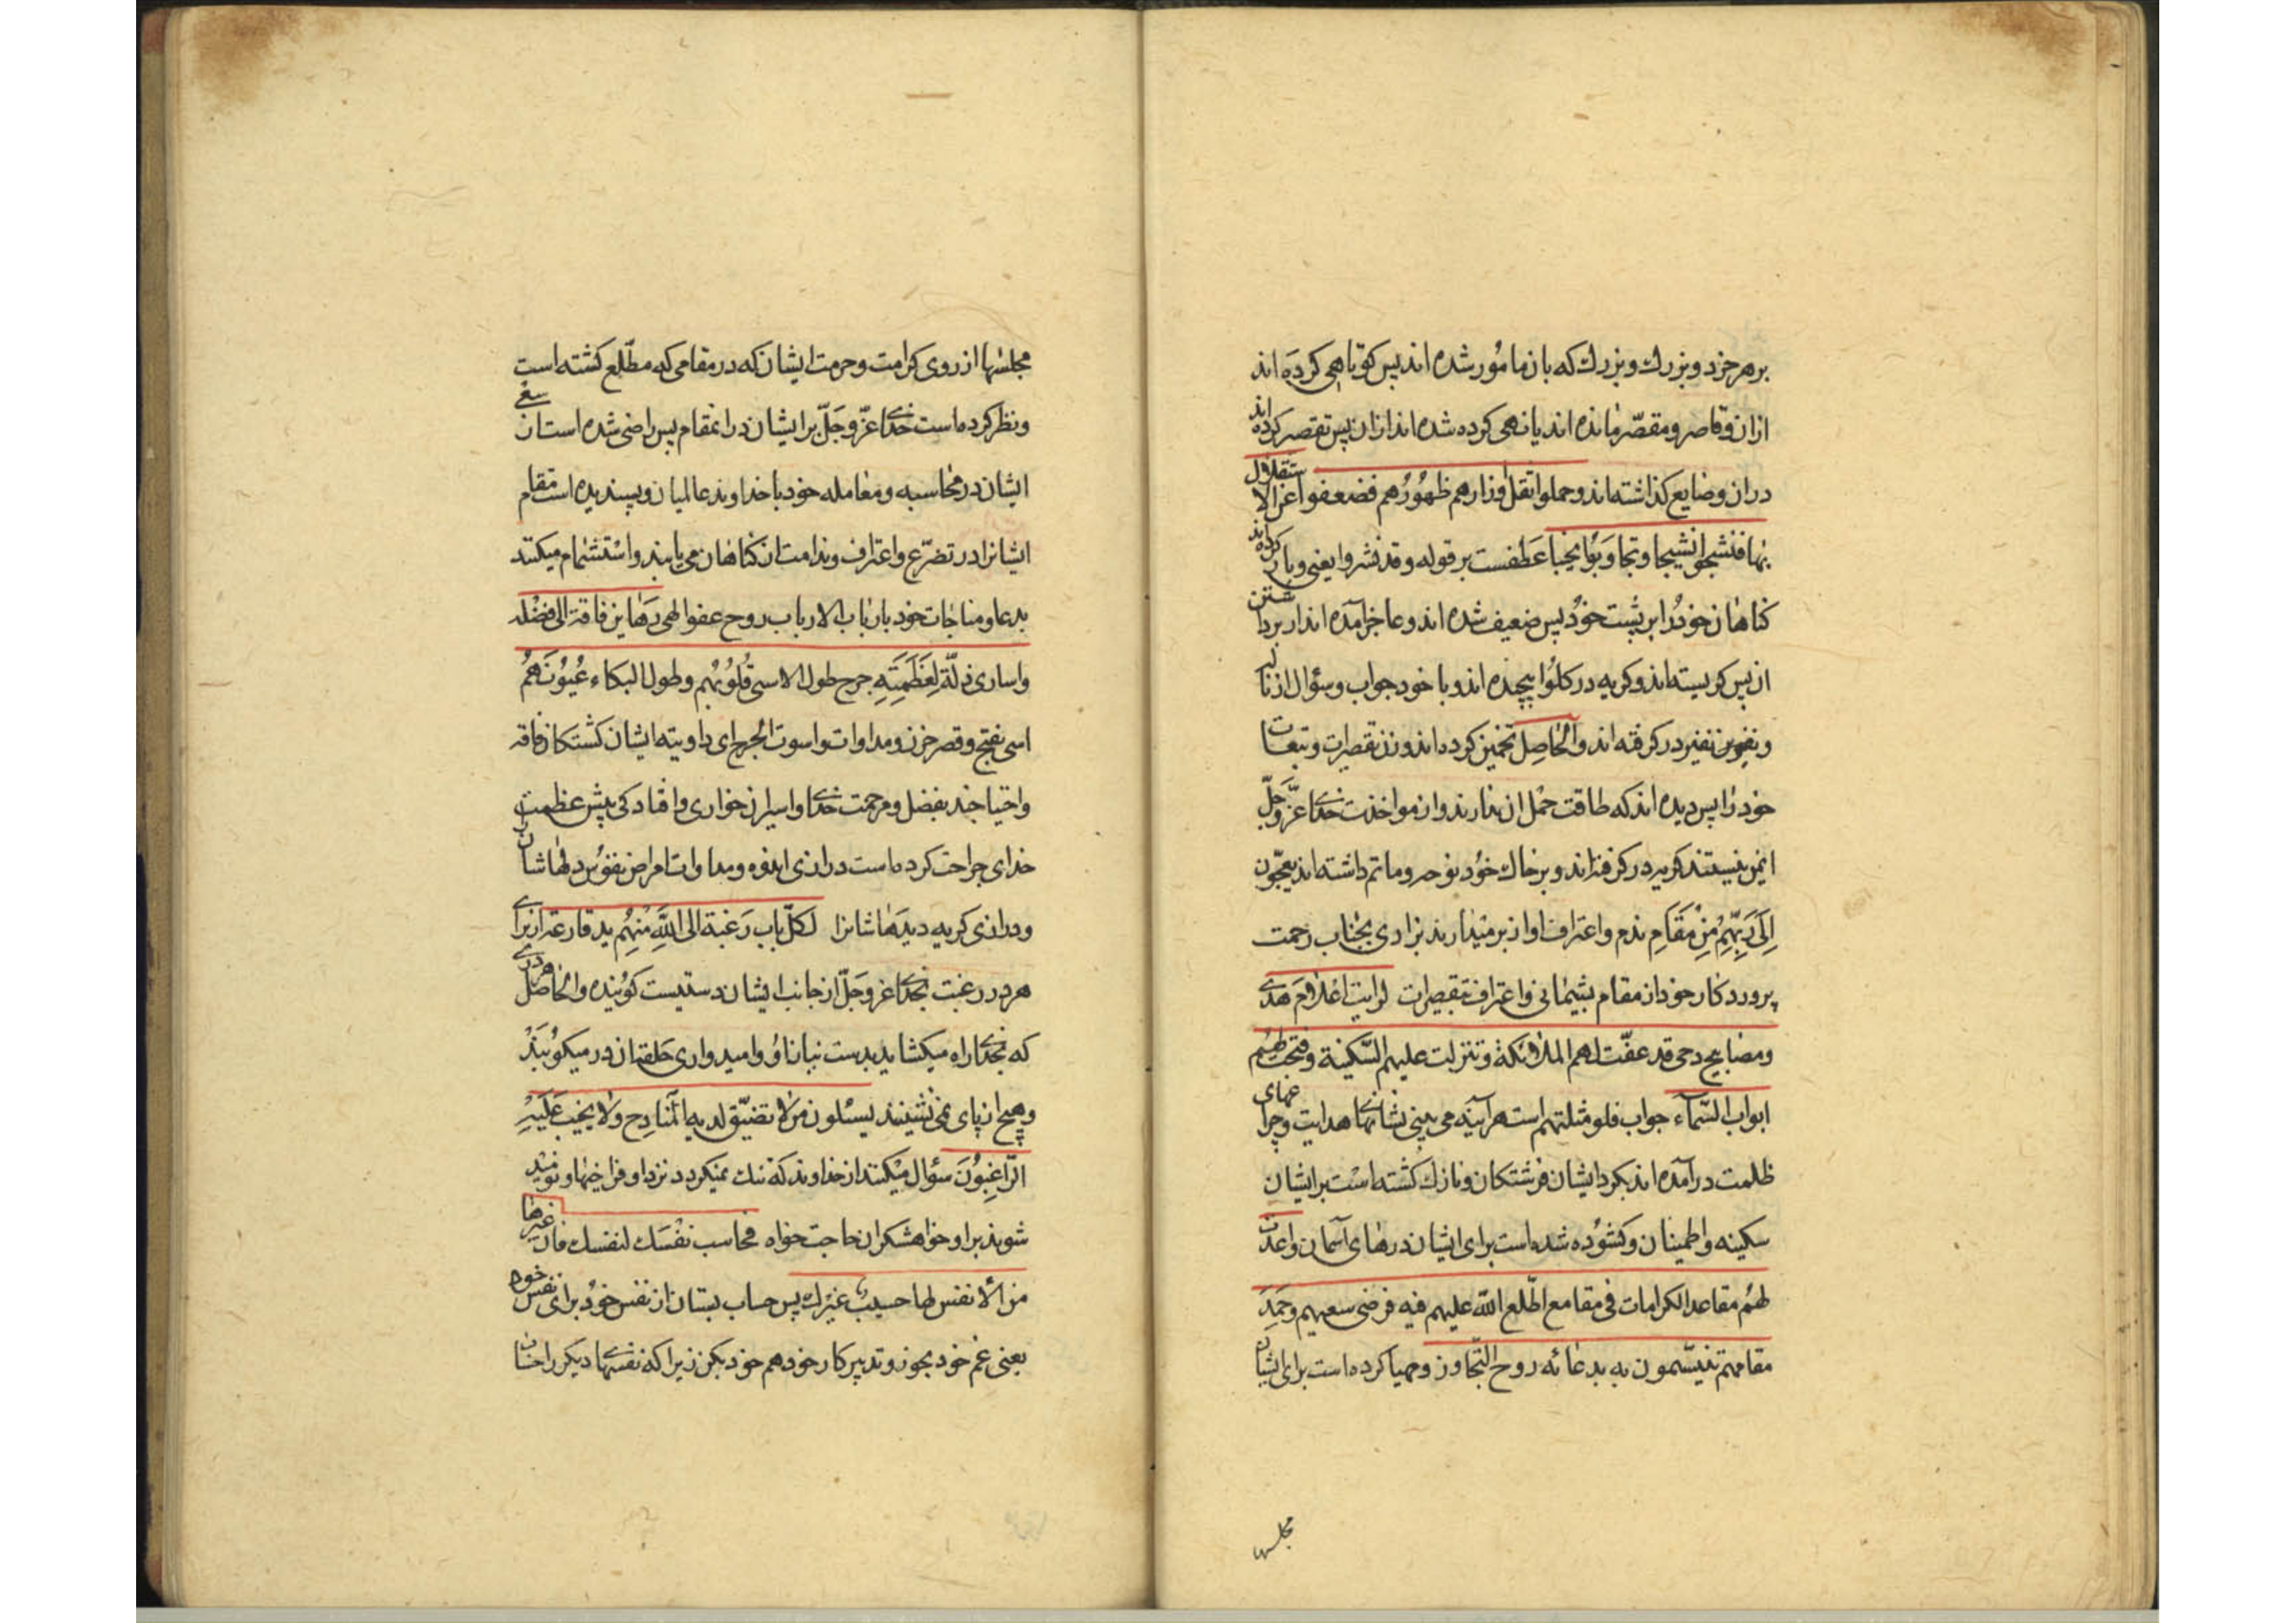 برهر خرد و بزرك و بزرك كه بان مامور شده اند پس كوتاهى كرده اند
ازان و قاصر و مقصّر مانده اند يا نهى كرده شده اند ازان پس تقصير كرده اند
دران و ضايع كذاشته اند و حملوا ثقل اوزارهم ظهُورُهم فضعفوا عن الاستقلال
بها فنشجوا نشيجا و تجاوبُوا نحيبا عَطفست بر قوله و قد نشروا يعنى و بار كرده اند
كناهان خودرا بر پشت خوُد پس ضعيف شده اند و عاجز آمده اند از برداشتن
ان پس كريسته اند و كريه در كلوُ پيچيده اند و با خود جواب و سؤال از ناله
و نفير در كرفته اند و الحٰاصِل تخمين كرده اند وزن تقصيرات و تبعات
خود را پس ديده اند كه طاقت حمْل ان ندارند و از مواخذت خداى عزّ وجلّ
ايمن نيستند كريه در كرفته اند و بر حال خوُد نوحه و ماتم داشته اند يعجّون
اِلىٰ رَبِّهِمْ مِنْ مَقٰامِ ندم و اعتراف اواز بر ميدارند بزارى بجناب رحمت
پروردكار خود از مقام پشيمانى و اعتراف بتقصيرات لرايت اعلام هدى
و مصابيح دجى قد حفّت لهم الملائكة و تنزلت عليهم السّكينة و فتحت لهُم
ابواب السّمآء جواب فلو مثلتهم است هرآينه مى بينى نشانهاى هدايت و چراغهاى
ظلمت درآمده اند بكرد ايشان فرشتكان و نازل كشته است بر ايشان
سكينه و اطمينان و كشوُده شده است براى ايشان درهاى آسمان و اعدّت
لهُم مقاعد الكرامات فى مقام اطّلع اللّه عليهم فيه فرضى سعيهم و حمِدَ
مقامهم يتنسّمون به بدعائه روح التّجاوز و مهيا كرده است براى ايشان
مجلسها
مجلسها از روى كرامت و حرمت ايشان كه در مقامى كه مطّلع كشته است
و نظر كرده است خداى عزّ و جلّ بر ايشان در انمقام پس راضى شده است از سعى
ايشان در محاسبه و معامله خود با خداوند عالميان و پسنديده است مقام
ايشانرا در تضرّع و اعتراف و ندامت از كناهان مى يابند و استشمام ميكنند
بدعا و مناجات خود بارباب الارباب روح عفو الهى رَهاين فاقة الى فضله
و اسارى ذلّة لِعَظَمَتِهِ جرح طول الاسى قُلُوبُهُم و طول البكاء عُيُونَهُمْ
اسى بفتح و قصر حزن و مداوات و اسوت الجُرح اى داويته ايشان كشتكان فاقه
و احتياجند بفضل و مرحمت خداى و اسيران خوارى و افتادكى پيش عظمت
خداى جراحت كرده است درازى اندوه و مداوات امراض نفوُس دلهاشان را
و درازى كريه ديدهاشانرا لكلّ باب رَغبة الى اللّهِ مِنْهُم يد قارعة از براى
هر در رغبت بخداى عز و جَلّ از جانب ايشان دستيست كوُبنده و الحٰاصل هر درى
كه بخداى راه ميكشايد بدست نياز او و اميدوارى حلقه ان در ميكوُبَنْد
و هيچ از پاى نمى نشينند يسئلون من لا تضيّق لديه المَنادِح و لا يخيب عَلَيْهِ
الرّاغِبُونَ سؤال ميكنند از خداوند كه تنك نميكردد نزد او فراخيها و نوميد
شوند بر او خواهشكران حاجت خواه فحاسب نفْسَك لنفسك فان غيرها
من الأنفس لها حسيب غيرك پس حساب بستان از نفس خوُد براى نفس خود
يعنى غم خود بخور و تدبير كار خود هم خود بكن زيرا كه نفسهاى ديكر را حسا